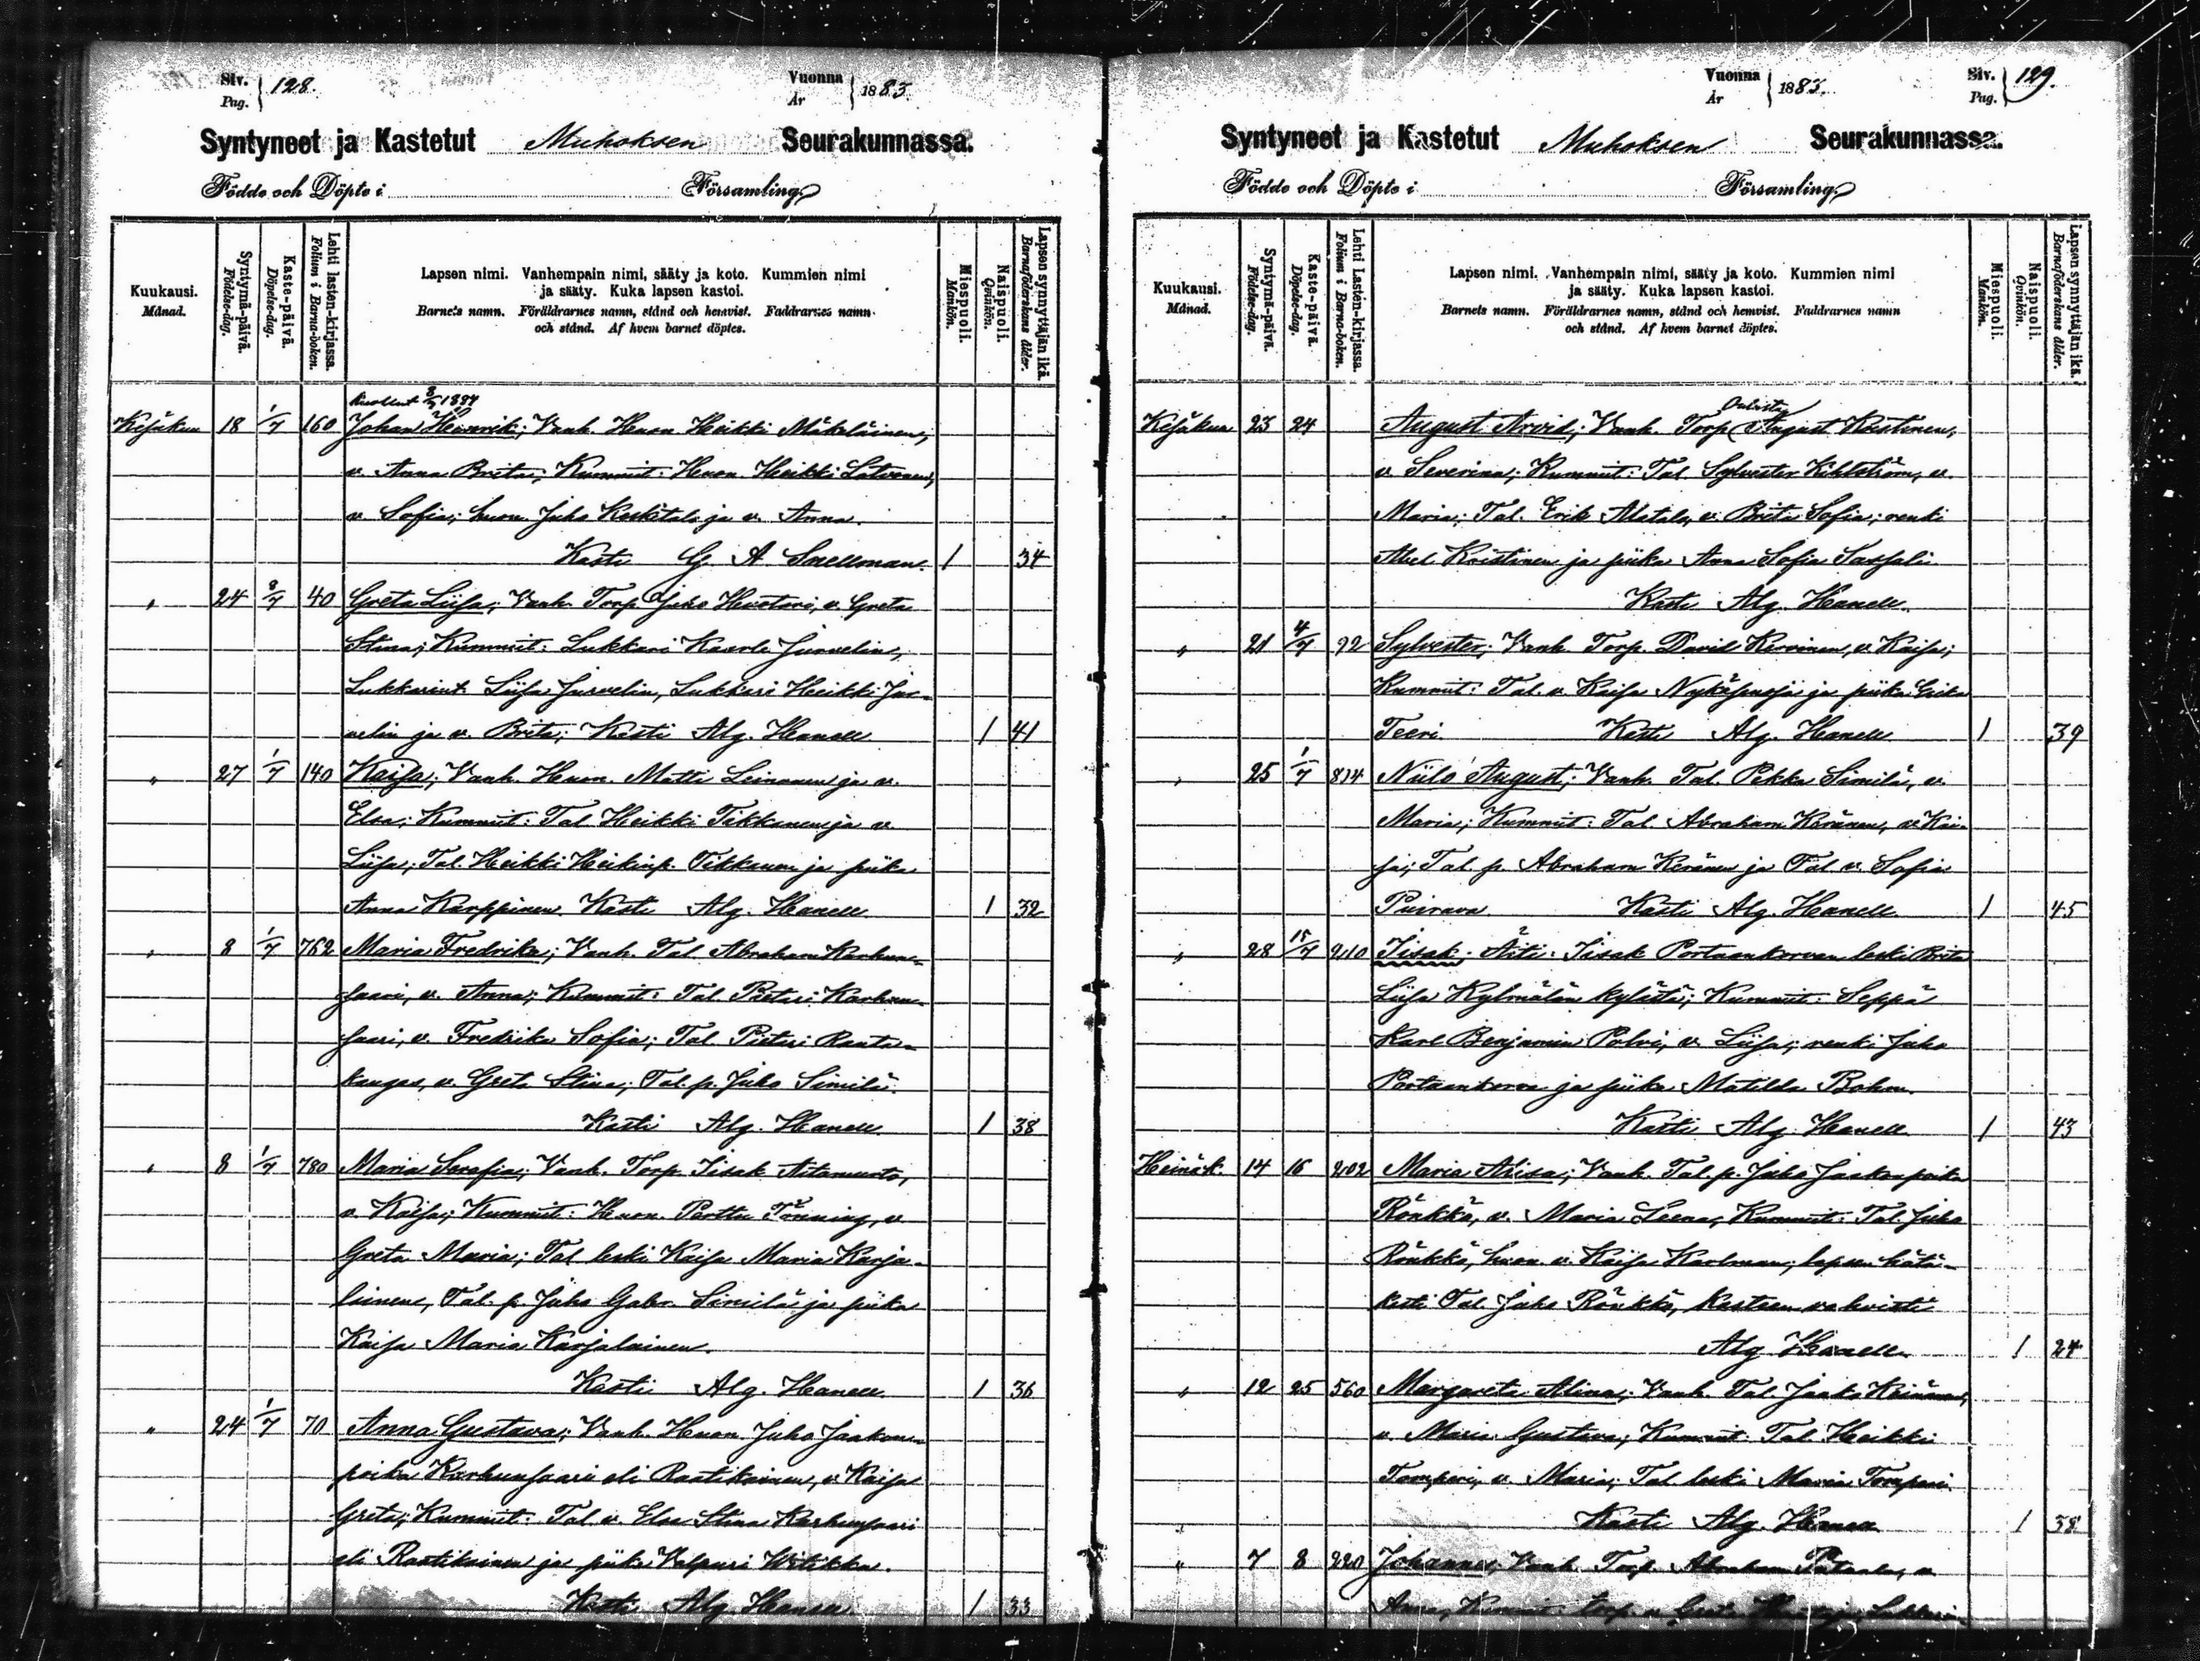 Siv.
Pag.
128.
Vuonna
År
1883.
Syntyneet ja Kastetut Muhoksen Seurakunnassa.
Födde och Döpte i Församling.
Kuukausi.
Månad.
Syntymä-päivä.
Födelse-dag.
Kaste-päivä.
Döpelse-dag.
Lehti lasten-kirjassa.
Folium i Barna-boken.
Lapsen nimi. Vanhempain nimi, sääty ja koto. Kummien nimi
ja sääty. Kuka lapsen kastoi.
Barnets namn. Föräldrarnes namn, stånd och hemvist. Faddrarnes namn
och stånd. Af hvem barnet döptes.
Miespuoli.
Mankön.
Naispuoli.
Qvinkön.
Lapsen synnyttäjän ikä.
Barnaföderskans ålder.
Kuollut 1884
Kesäkuu 18 1/7 160 Johan Henrik; Vanh. Huon Heikki Mäkeläinen,
v. Anna Brita; Kummit: Huon. Heikki Latvonen,
v. Sofia; huon. Juho Keskitalo ja v. Anna.
Kasti G. A Snellman. 1 34
" 24 8/7 40 Greta Liisa; Vanh. Torp. Juho Huotari, v. Greta
Stina; Kummit: Lukkari Kaarlo Jurvelin,
Lukkarint. Liisa Jurvelin, Lukkari Heikki Jur-
velin ja v. Brita; Kasti Alg. Hanell 1 41
" 27 1/7 140 Kaisa; Vanh. Huon. Matti Leinonen ja v.
Elsa; Kummit: Tal. Heikki Tikkanen ja v.
Liisa; Tal. Heikki Heikinp. Tikkanen ja piika
Anna Karppinen. Kasti Alg. Hanell 1 32
" 8 1/7 762 Maria Fredrika; Vanh. Tal Abraham Karhun-
saari, v. Anna; Kummit: Tal. Pietari Karhun-
saari, v. Fredrika Sofia; Tal. Pietari Ranta-
kangas, v. Greta Stina; Tal. p. Juho Similä.
Kasti Alg. Hanell. 1 38
" 8 1/7 780 Maria Serafia; Vanh. Torp. Iisak Aitamurto,
v. Kaisa; Kummit: Huon. Perttu Tönning, v.
Greta Maria; Tal. leski Kaisa Maria Karja-
lainen, Tal. p. Juho Gabr. Similä ja piika
Kaisa Maria Karjalainen.
Kasti Alg. Hanell 1 36
" 24 1/7 70 Anna Gustava; Vanh. Huon. Juho Jaakon-
poika Karhunsaari eli Raatikainen, v. Kaisa
Greta; Kummit: Tal. v. Elsa Stina Karhunsaari
eli Raatikainen ja piika Valpuri Witikka.
Kasti Alg. Hanell. 1 33
Vuonna
År
1883.
Siv.
Pag.
129.
Syntyneet ja Kastetut Muhoksen Seurakunnassa.
Födde och Döpte i Församling.
Kuukausi.
Månad.
Syntymä-päivä.
Födelse-dag.
Kaste-päivä.
Döpelse-dag.
Lehti Lasten-kirjassa.
Folium i Barna-boken.
Lapsen nimi. Vanhempain nimi, sääty ja koto. Kummien nimi
ja sääty. Kuka lapsen kastoi.
Barnets namn. Föräldrarnes namn, stånd och hemvist. Faddrarnes namn
och stånd. Af hvem barnet döptes.
Miespuoli.
Mankön.
Naispuoli.
Qvinkön.
Lapsen synnyttäjän ikä.
Barnaföderskans ålder.
Oulusta
Kesäkuu 23 24 August Arvid; Vanh. Torp. August Kristinen,
v. Severina; Kummit: Tal. Sylvester Kihlström, v.
Maria; Tal. Erik Alatalo, v. Brita Sofia; renki
Abel Kristinen ja piika Anna Sofia
Kasti Alg. Hanell.
" 21 4/7 92 Sylvester; Vanh. Torp. David Kervinen, v. Kaisa;
Kummit: Tal. v. Kaisa ja piika Erika
Teeri. Kasti Alg. Hanell 1 39
" 25 1/7 814 Niilo August; Vanh. Tal. Pekka Similä, v.
Maria; Kummit: Tal. Abraham Keränen, v. Kai-
sa; Tal. p. Abraham Keränen ja Tal. v. Sofia
Puirava. Kasti Alg. Hanell 1 45
" 28 15/7 210 Iisak. Äiti: Iisak Portaankorvan leski Brita
Liisa Kylmälän kylästä; Kummit: Seppä
Karl Benjamin Polvi, v. Liisa; renki Juho
Portaankorva ja piika Matilda Bohm.
Kasti Alg. Hanell 1 43
Heinäk. 14 16 202 Maria Alisa; Vanh. Tal. p. Juho Jaakonpoika
Rönkkö, v. Maria Leena; Kummit: Tal. Juho
Rönkkö, huon. v. Kaisa Karlman; lapsen hätä-
kasti Tal. Juho Rönkkö, kasteen vahvisti
Alg. Hanell. 1 24
" 12 25 560 Margareta Alina; Vanh. Tal Jaako Keinänen,
v. Maria Gustava; Kummit: Tal. Heikki
Tomperi, v. Maria; Tal. leski Maria Tomperi.
Kasti Alg. Hanell 1 38
" 7 8 220 Johannes; Vanh. Torp. Abraham v.
Anna, Kummit: torp. v. Greta